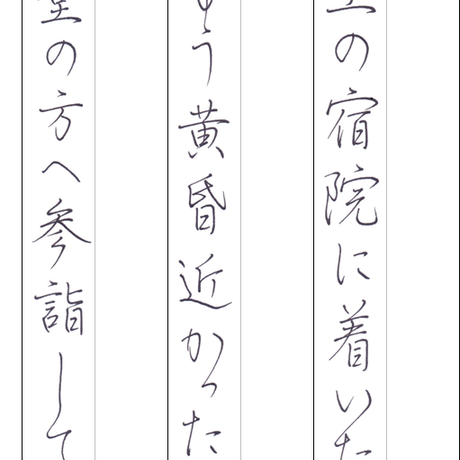 の宿院に着いた
う黄昏近かった
堂の方へ参詣して